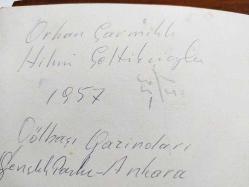 Orhan Çarmıklı
Hilmi Çeltikçioğlu
1957
Gölbaşı Gazinoları
Gençlik Parkı - Ankara